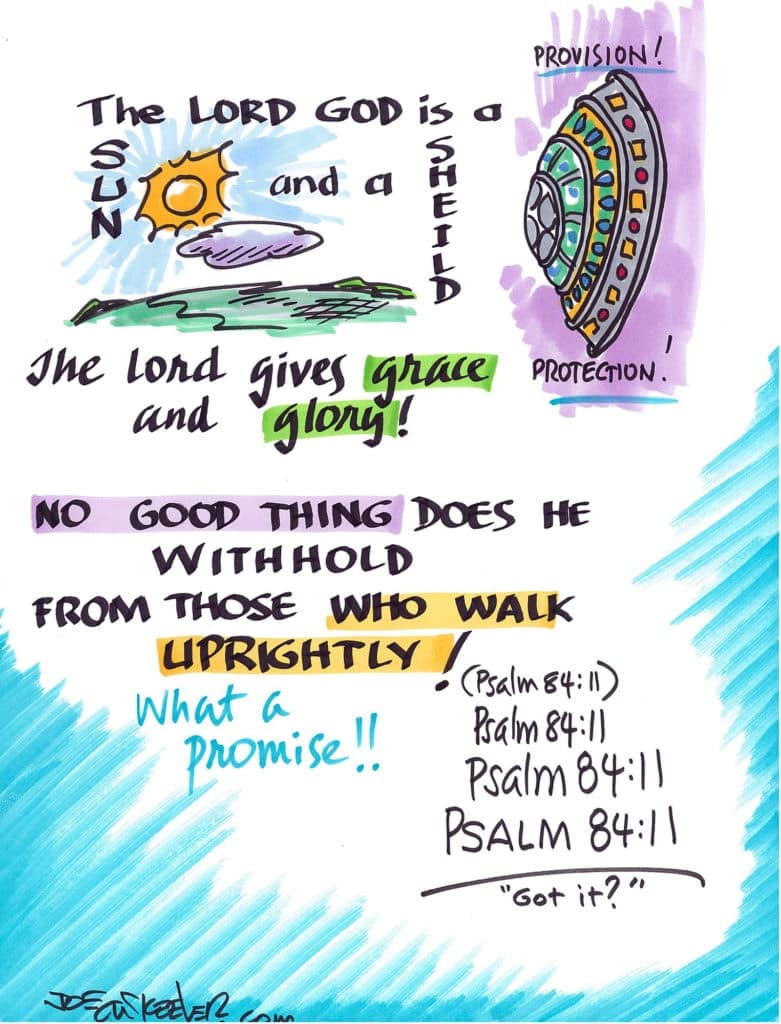 PROVISION!
The LORD GOD is a
SUN
and a
SHEILD
PROTECTION!
The Lord gives grace
and glory!
NO GOOD THING DOES HE
WITHHOLD
FROM THOSE WHO WALK
UPRIGHTLY!
(Psalm 84:11)
What a
promise!!
Psalm 84:11
Psalm 84:11
PSALM 84:11
"Got it?"
JOEMCKEEVER.com